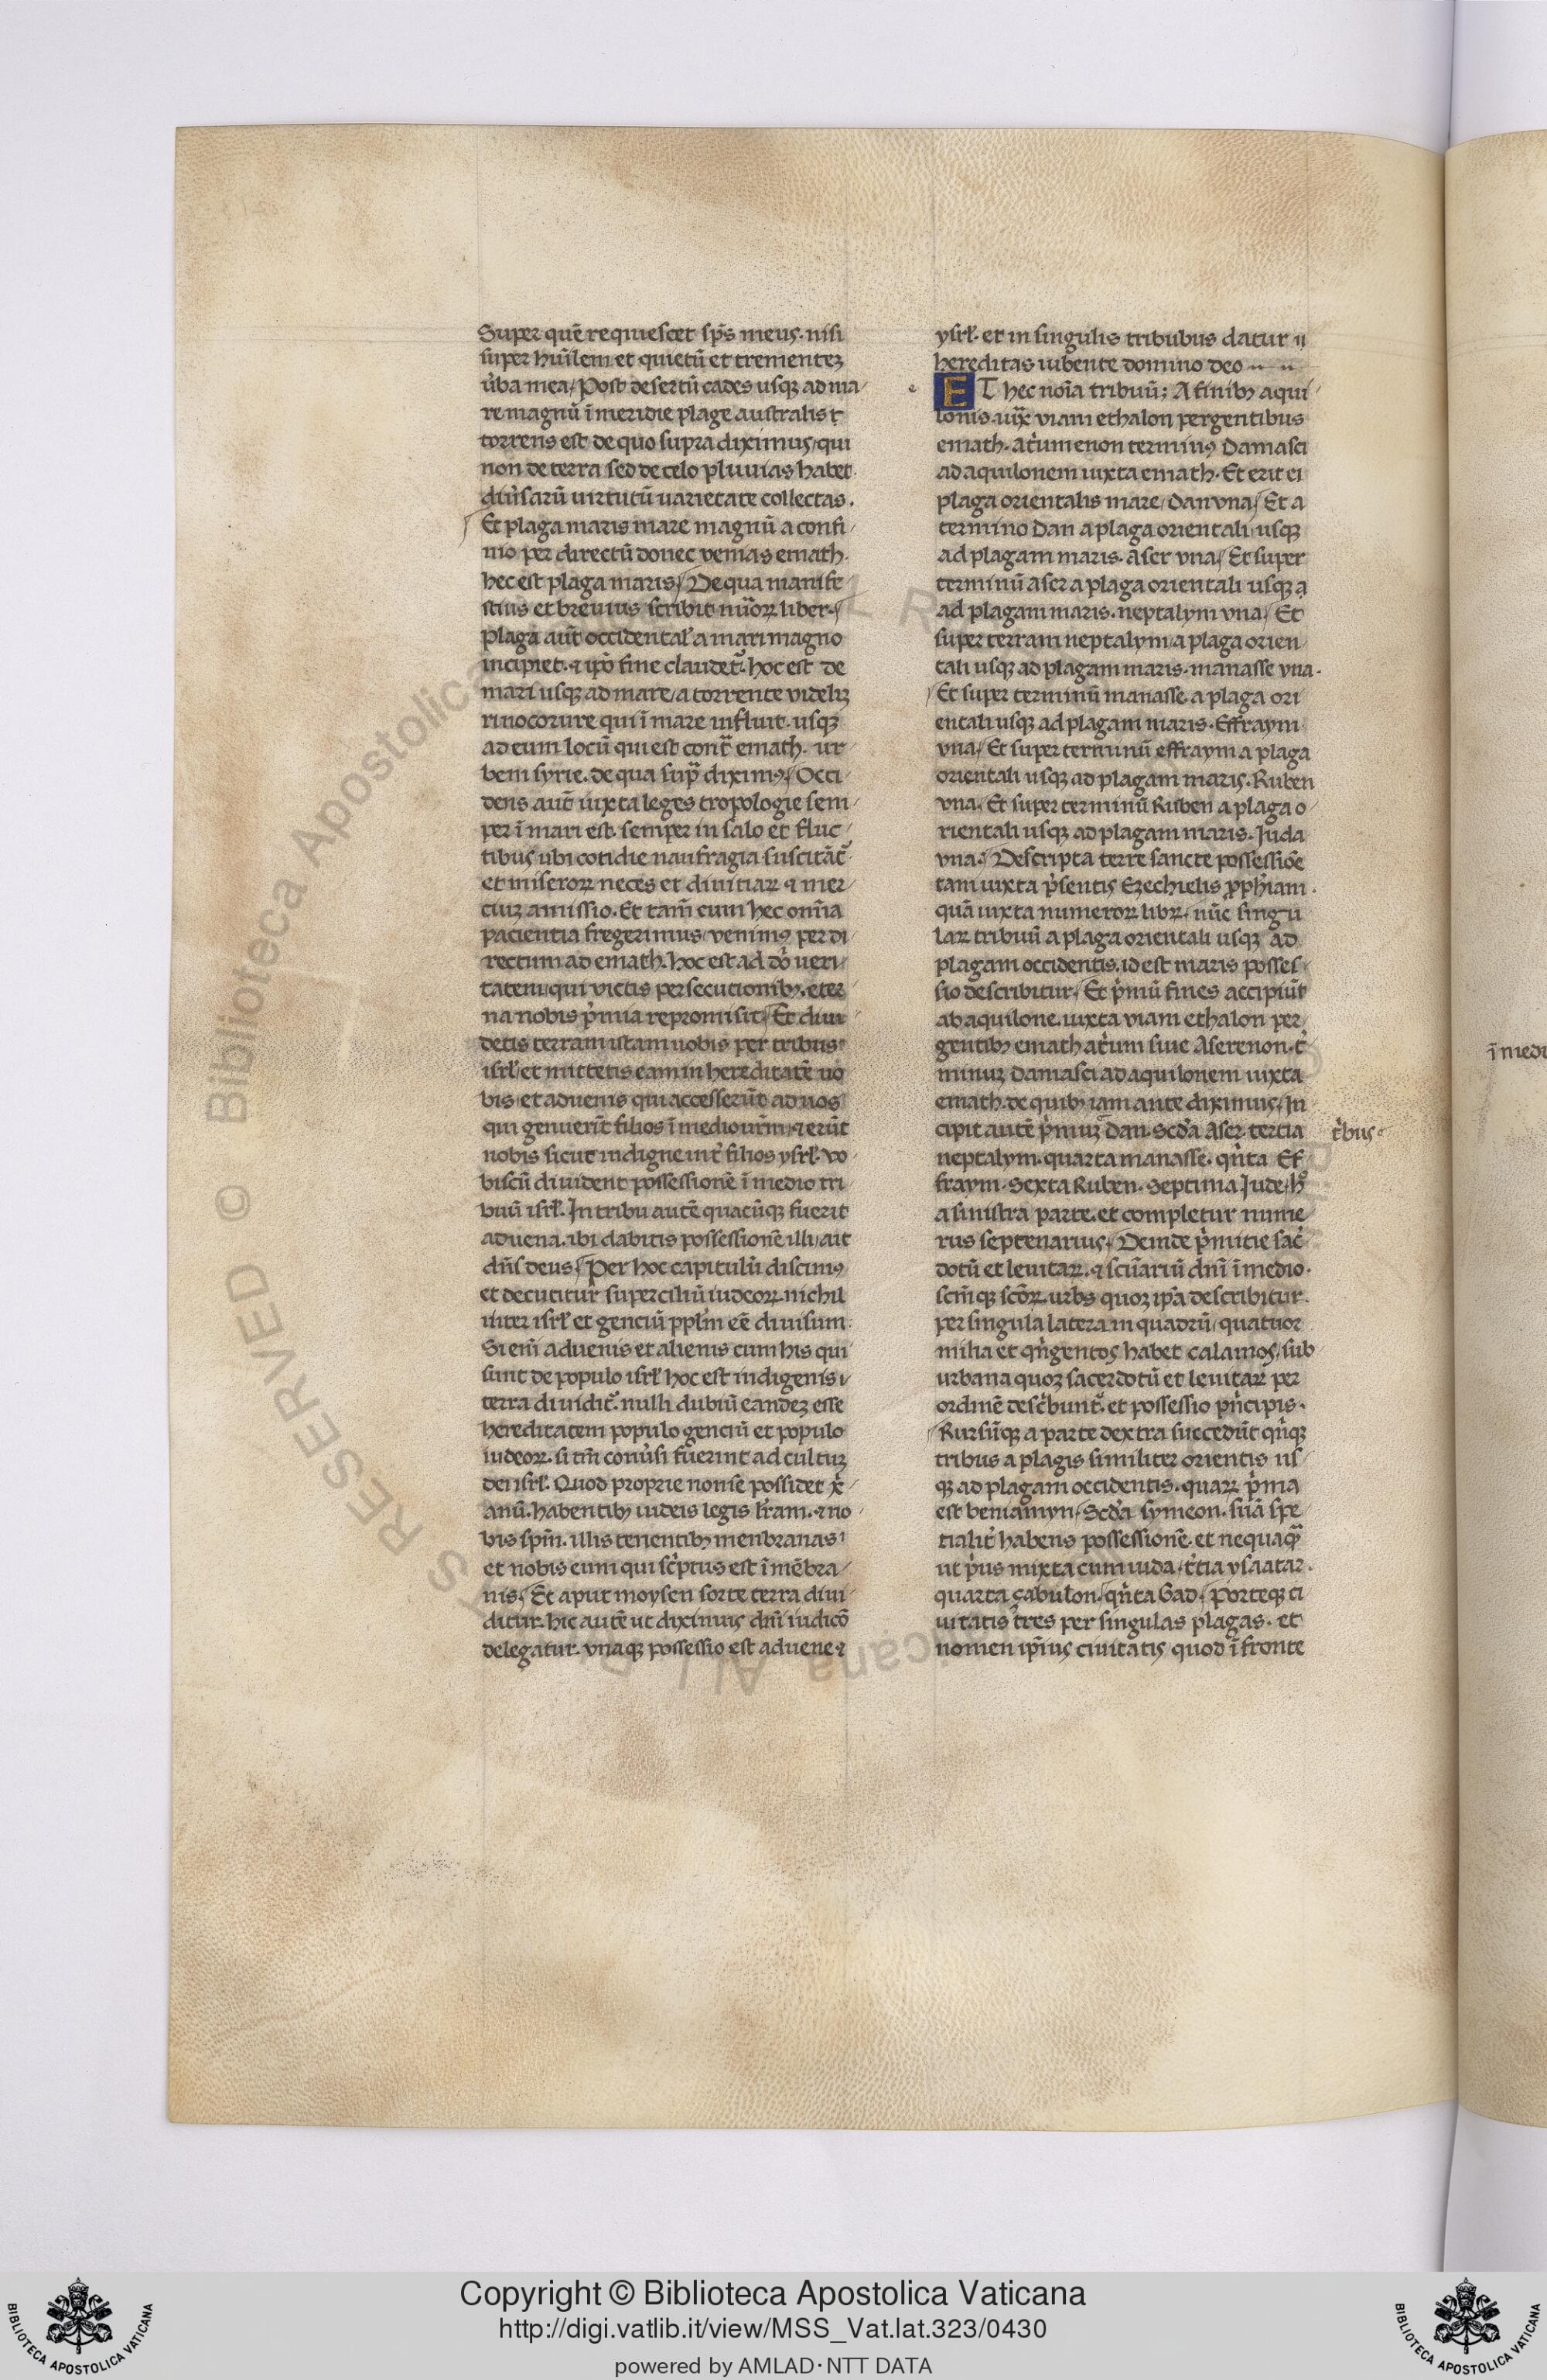 Super quē requiescet sp̄s meus. nisi
super hūilem et quietū et trementeʒ
ủba mea / Post desertū cades usqʒ ad ma
re magnū ī meridie plage australis t
torrens est de quo supra diximus / qui
non de terra sed de celo pluuias habet
diủsarū uirtutū uarietate collectas.
Et plaga maris mare magnū a confi
nio per directū donec venias emath.
hec est plaga maris / De qua manife
stius et breuius scribit nūoꝝ liber. /
plaga aut̄ occidental̓ a mari magno
incipiet. ⁊ ip̄o fine claudet᷑. hoc est de
mari usqʒ ad mare / a torrente videliʒ
rinocorure qui ī mare influit. usqʒ
ad eum locū qui est cont̄ emath. ur
bem syrie. de qua sup̄ diximꝰ / Occi
dens aut̄ iuxta leges tropologie sem
per ī mari est. semper in salo et fluc
tibus ubi cotidie naufragia suscitāt᷑
et miseroꝝ neces et diuitiaꝝ ⁊ mer
ciuʒ amissio. Et tam̄ cum hec om̄ia
pacientia fregerimus / venimꝰ per di
rectum ad emath. hoc est ad dō ueri
tatem / qui victis persecutionibʒ. eter
na nobis p̓mia repromisit / Et diui
detis terram istam uobis per tribus
isrl̓ et mittetis eam in hereditatē uo
bis / et aduenis qui accesserūt ad uos
qui genuerīt filios ī medio ur̄m / ⁊ erūt
nobis sicut indigne int̓ filios ysrl̓. vo
biscū diuident possessionē ī medio tri
buū isrl̓. In tribu autē quacūqʒ fuerit
aduena. ibi dabitis possessionē illi / ait
dn̄s deus / Per hoc capitulū discimꝰ
et decutitur superciliū iudeoꝝ. nichil
inter isrl̓ et genciū ppl̄m eē diuisum.
Si eni̅ aduenis et alienis cum his qui
sunt de populo isrl̓ hoc est indigenis
terra diuidit᷑. nulli dubiū eandeʒ esse
hereditatem populo genciū et populo
iudeoꝝ. si tm̄ conủsi fuerint ad cultuʒ
dei isrl̓. Quod proprie nomse possidet x̄
anū. habentibʒ iudeis legis lr̄am. ⁊ no
bis spm̄. illis tenentibʒ menbranas
et nobis eum qui sc̓ptus est ī mēbra
nis / Et aput moysen sorte terra diui
ditur. hic autē ut diximus dn̄i iudicō
delegatur. vnaqʒ possessio est aduene ⁊
ysrl̓. et in singulis tribubus datur
hereditas iubente domino deo
ET hec noīa tribuū; A finibʒ aqui
lonis. iux̄ viam ethalon pergentibus
emath. at̓umenon terminꝰ Damasci
ad aquilonem iuxta emath. Et erit ei
plaga orientalis mare / Dan vna / Et a
termino Dan a plaga orientali usqʒ
ad plagam maris. aser vna / Et super
terminū aser a plaga orientali usqʒ a
ad plagam maris. neptalym vna / Et
super terram neptalym / a plaga orien
tali usqʒ ad plagam maris. manasse vna.
Et super terminū manasse. a plaga ori
entali usqʒ ad plagam maris. Effraym
vna / Et super terminū effraym a plaga
orientali usqʒ ad plagam maris. Ruben
vna. Et super terminū Ruben a plaga o
rientali usqʒ ad plagam maris. Juda
vna. / Descripta terre sancte possessiōe
tam iuxta p̓sentis Ezechielis ꝓph̓iam.
quā iuxta numeroꝝ libꝝ. nūc singu
laꝝ tribuū a plaga orientali usqʒ ad
plagam occidentis. id est maris posses
sio describitur / Et p̓mū fines accipiūt
ab aquilone. iuxta viam ethalon per
gentibʒ emath at̓um siue Aserenon. t̓
minuʒ damasci ad aquilonem iuxta
emath. de quibʒ iam ante diximus / In
cipit autē p̓muʒ Dan. Scd̓a Aser. tertia
t̓bus
neptalym. quarta manasse. qn̓ta Ef
fraym. Sexta Ruben. Septima Jude / h̓
a sinistra parte. et completur nume
rus septenarius / Deinde p̓mitie sac̓
dotū et leuitaꝝ. ⁊ scūariū dn̄i ī medio.
scm̄qʒ scōꝝ. urbs quoʒ ip̄a describitur.
per singula latera in quadrū / quatuor
milia et qn̓gentos habet calamos / sub
urbana quoʒ sacerdotū et leuitaꝝ per
ordinē desc̓bunt᷑. et possessio pn̓cipis.
Rursūqʒ a parte dextra succedūt qn̓qʒ
tribus a plagis similiter orientis us
qʒ ad plagam occidentis. quaꝝ p̓ma
est beniamyn / Scd̓a symeon. suā spe
tialit̓ habens possessionē. et nequaqᷓ
ut p̓us mixta cum iuda / t̓tia ysaatar.
quarta çabulon. qn̓ta Gad / Porteqʒ ci
uitatis tres per singulas plagas. et
nomen ip̄ius ciuitatis quod ī fronte
ī medi
Copyright © Biblioteca Apostolica Vaticana
http://digi.vatlib.it/view/MSS_Vat.lat.323/0430
powered by AMLAD·NTT DATA
BIBLIOTECA APOSTOLICA VATICANA
BIBLIOTECA APOSTOLICA VATICANA